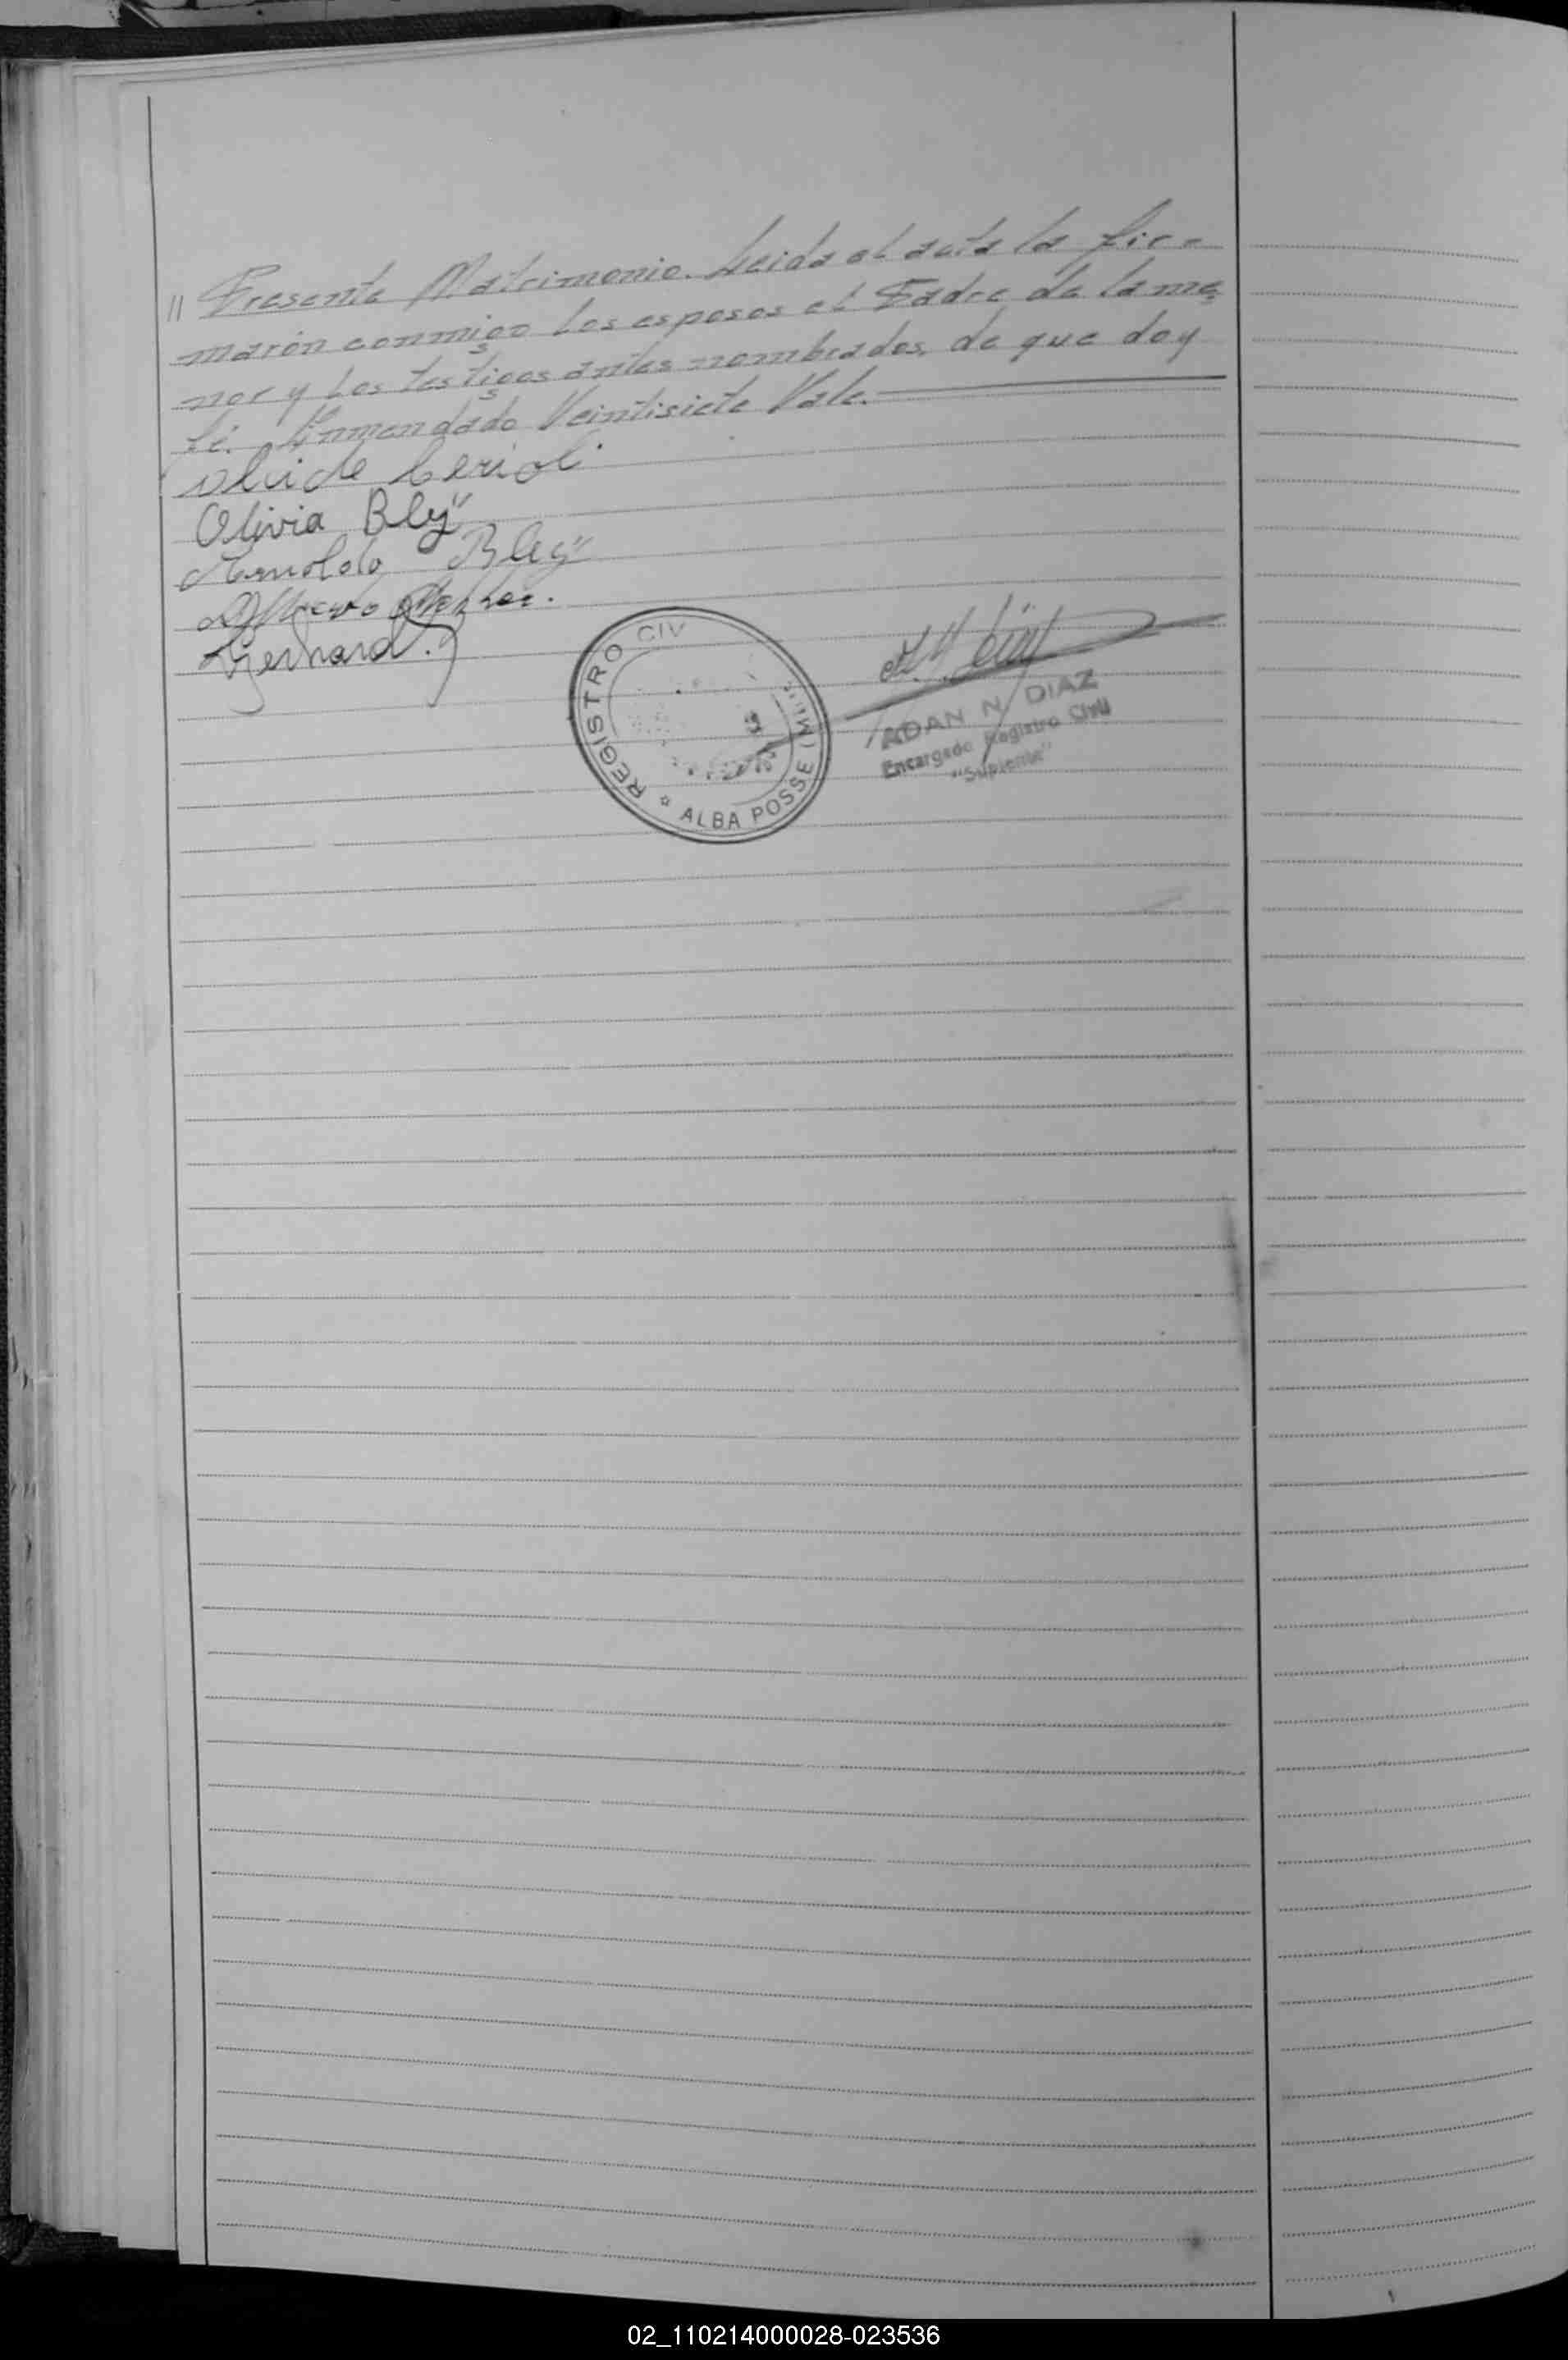 // Presente Matrimonio. Leida el acta la fir=
maron conmigo los esposos el Padre de la me=
nor y los testigos antes nombrados, de que doy
fé. Enmendado Veintisiete Vale.
Olivia Bley
Arnoldo Bley
Gerhard.
REGISTRO CIV
ALBA POSSE (MIS.
ADAN N. DIAZ
Encargado Registro Civil
"Suplente"
02_110214000028-023536